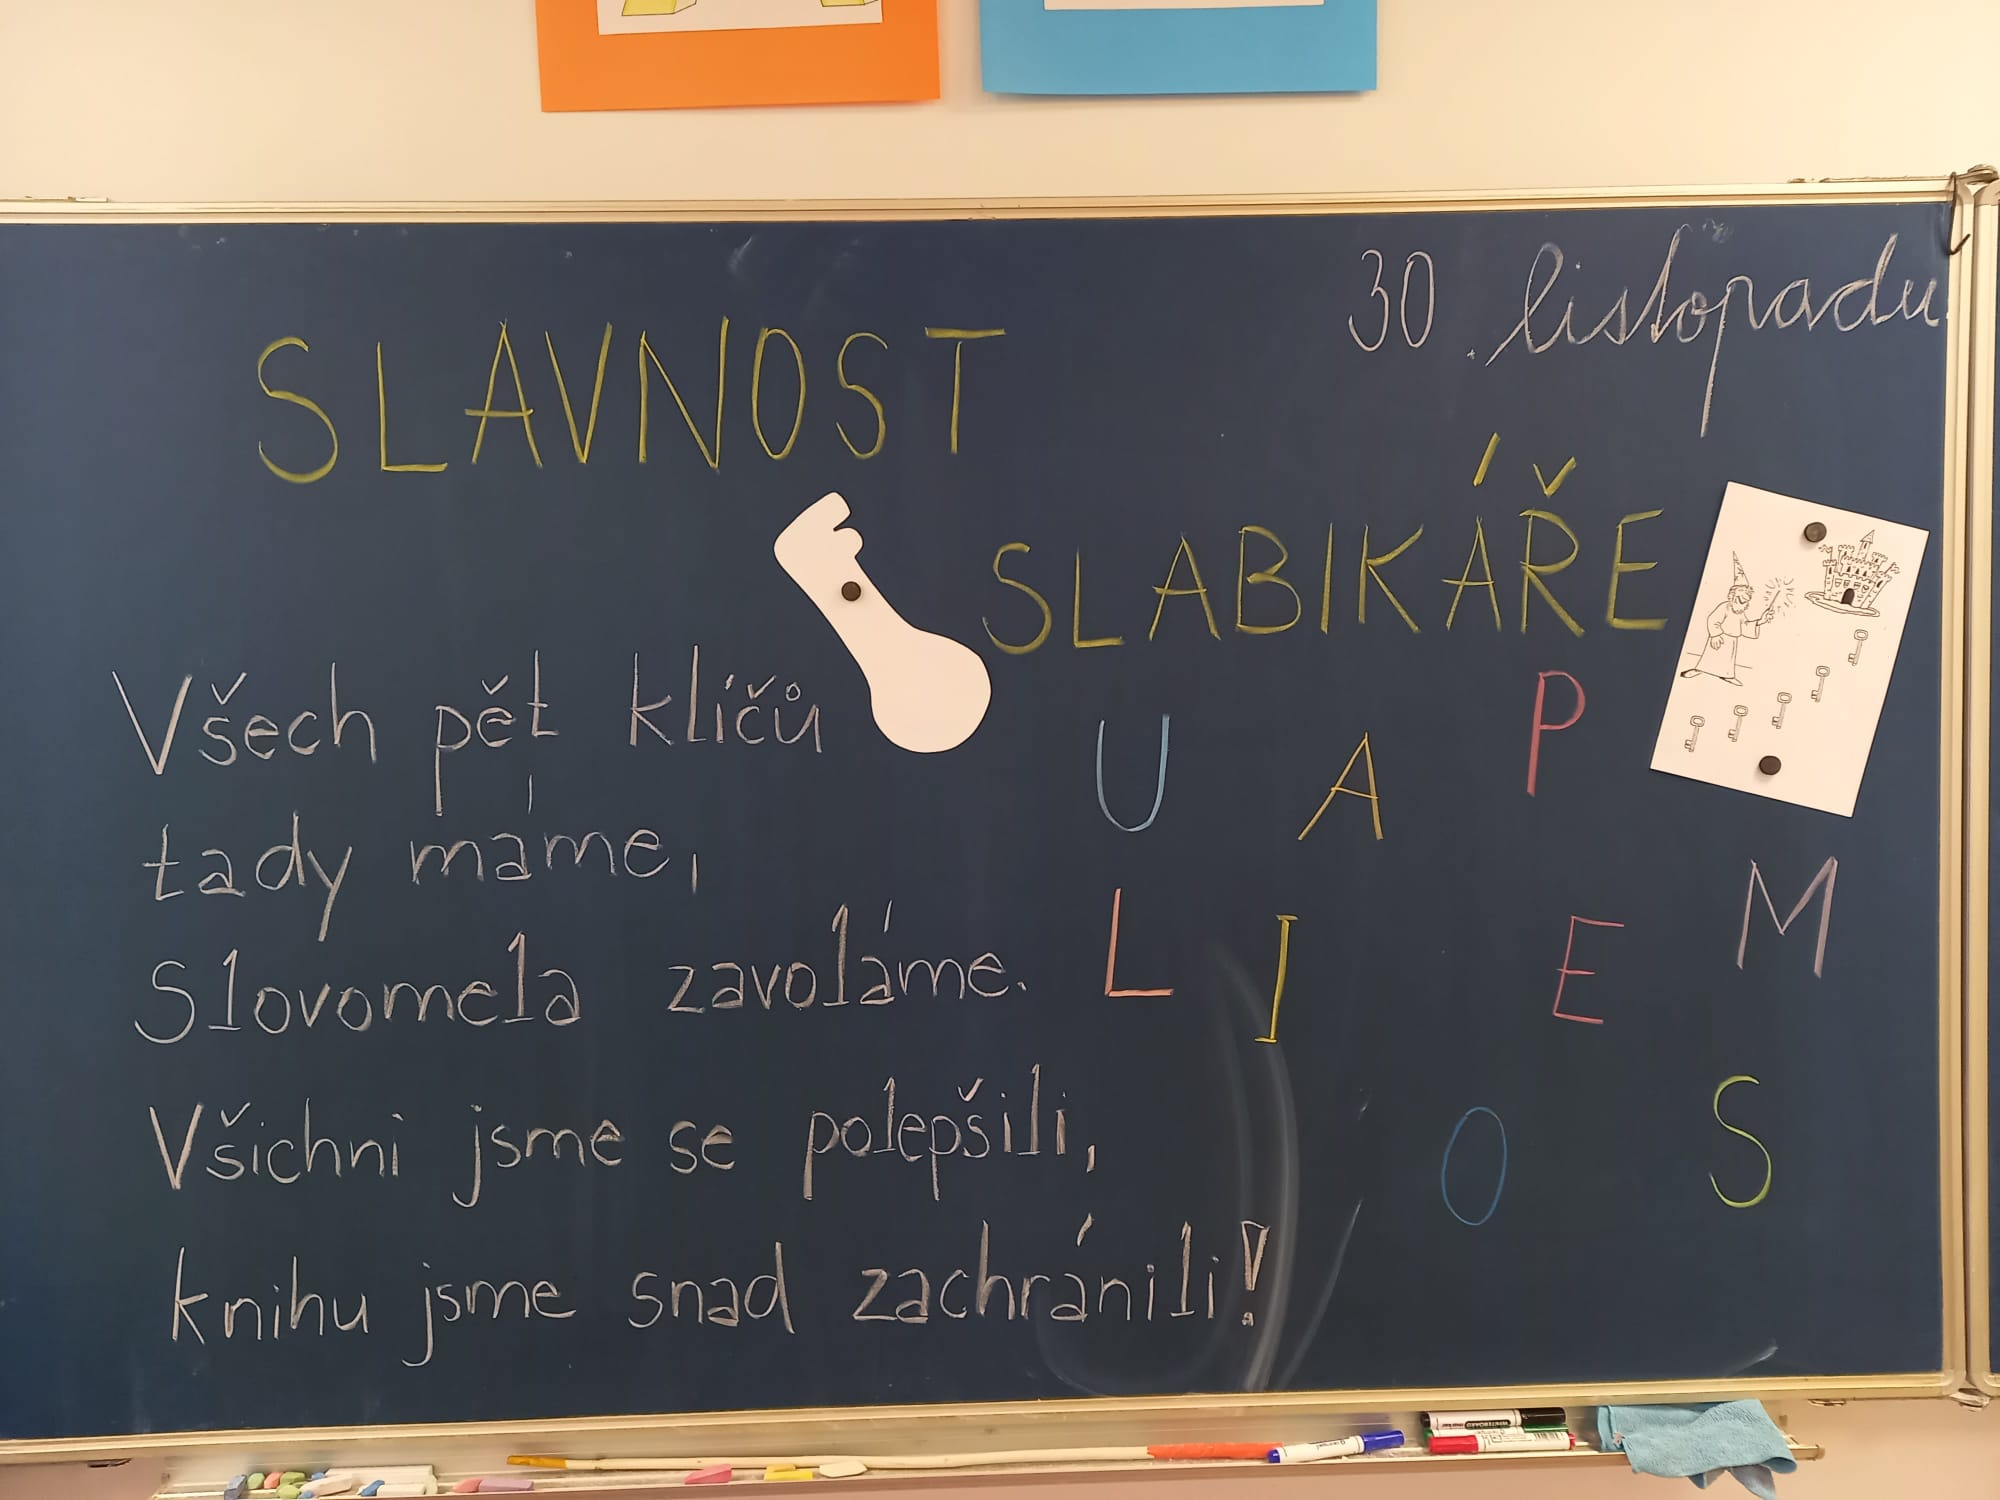 30. listopadu
SLAVNOST
SLABIKÁŘE
Všech pět klíčů
tady máme,
Slovomela zavoláme.
Všichni jsme se polepšili,
knihu jsme snad zachránili!
U A P
L I E M
O S